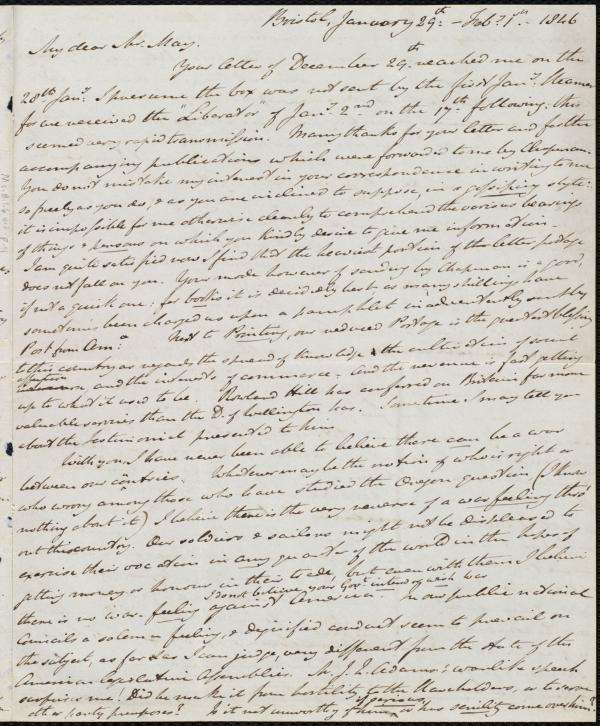 Bristol, January 29th. – Feby. 1st. – 1846
My dear Mr. May.
Your letter of December 29th. reached me on the
28th Jany. I presume the box was not sent by the first Jany. Steamer
for we received the "Liberator" of Jany. 2nd on the 17th. following. this
seemed very rapid transmission. Many thanks for your letter and for the
accompanying publications which were forwarded to me by Chapman.
You do not mistake my interest in your correspondence in writing to me
so freely as you do, & as you are inclined to suppose, in a gossiping style:
it is impossible for me otherwise clearly to comprehend the various bearings
of things & persons on which you kindly desire to give me information.
I am quite satisfied now I find that the heaviest portion of the letter postage
does not fall on you. Your mode however of sending by Chapman is a good,
if not a quick one: for books it is decidedly best as many shillings have
sometimes been charged us upon a pamphlet inadvertently sent by
Post from Ama. Next to Printing, our reduced Postage is the greatest blessing
to this country as regards the spread of knowledge & the cultivation of social
affection, and the interests of commerce – and the revenue is fast getting
up to what it used to be. Rowland Hill has conferred on Britain far more
valuable services than the D. of Wellington has. Sometime I may tell you
about the testimonial presented to him.
With you, I have never been able to believe there can be a war
between our countries. Whatever may be the notion of who is right or
who wrong among those who have studied the Oregon question (I know
nothing about it) I believe there is the very reverse of a war feeling thro'
out this country. Our soldiers & sailors might not be displeased to
exercise their vocation in any quarter of the world in the hopes of
getting money or honour in their trade, but even with them I believe
there is no war-feeling against America –
I do not believe your Govt. intends or wish war
In our public national
Councils a solemn feeling, & dignified conduct seem to prevail on
the subject, as far as I can judge, very different from the state of the
American Legislative Assemblies. Mr. J. Q. Adams' warlike speech
surprises me! Did he make it from hostility to the Slaveholders, or to serve
other party purposes? Is it not unworthy of him, or has senility come over him?